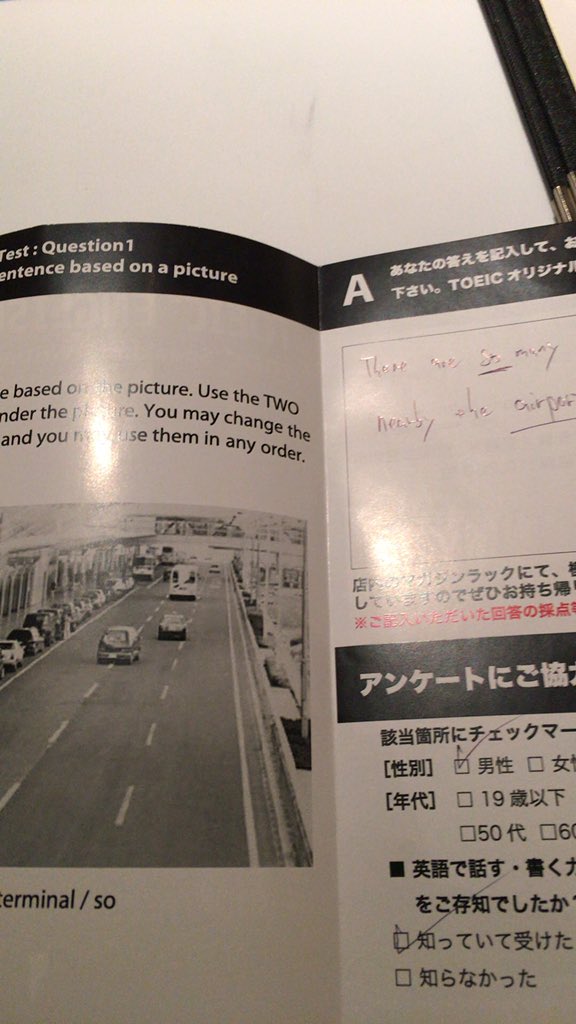 Test : Question1
entence based on a picture
e based on the picture. Use the TWO
nder the picture. You may change the
and you may use them in any order.
terminal / so
A
あなたの答えを記入して、お
下さい。TOEIC オリジナル
There are so many
nearby the airport
店内のマガジンラックにて、
していますのでぜひお持ち帰り
※ご記入いただいた回答の採点等
アンケートにご協力
該当箇所にチェックマー
[性別] ☑ 男性 □ 女性
[年代] □ 19歳以下
□50代 □60
■ 英語で話す・書く力
をご存知でしたか?
☑ 知っていて受けた
□ 知らなかった